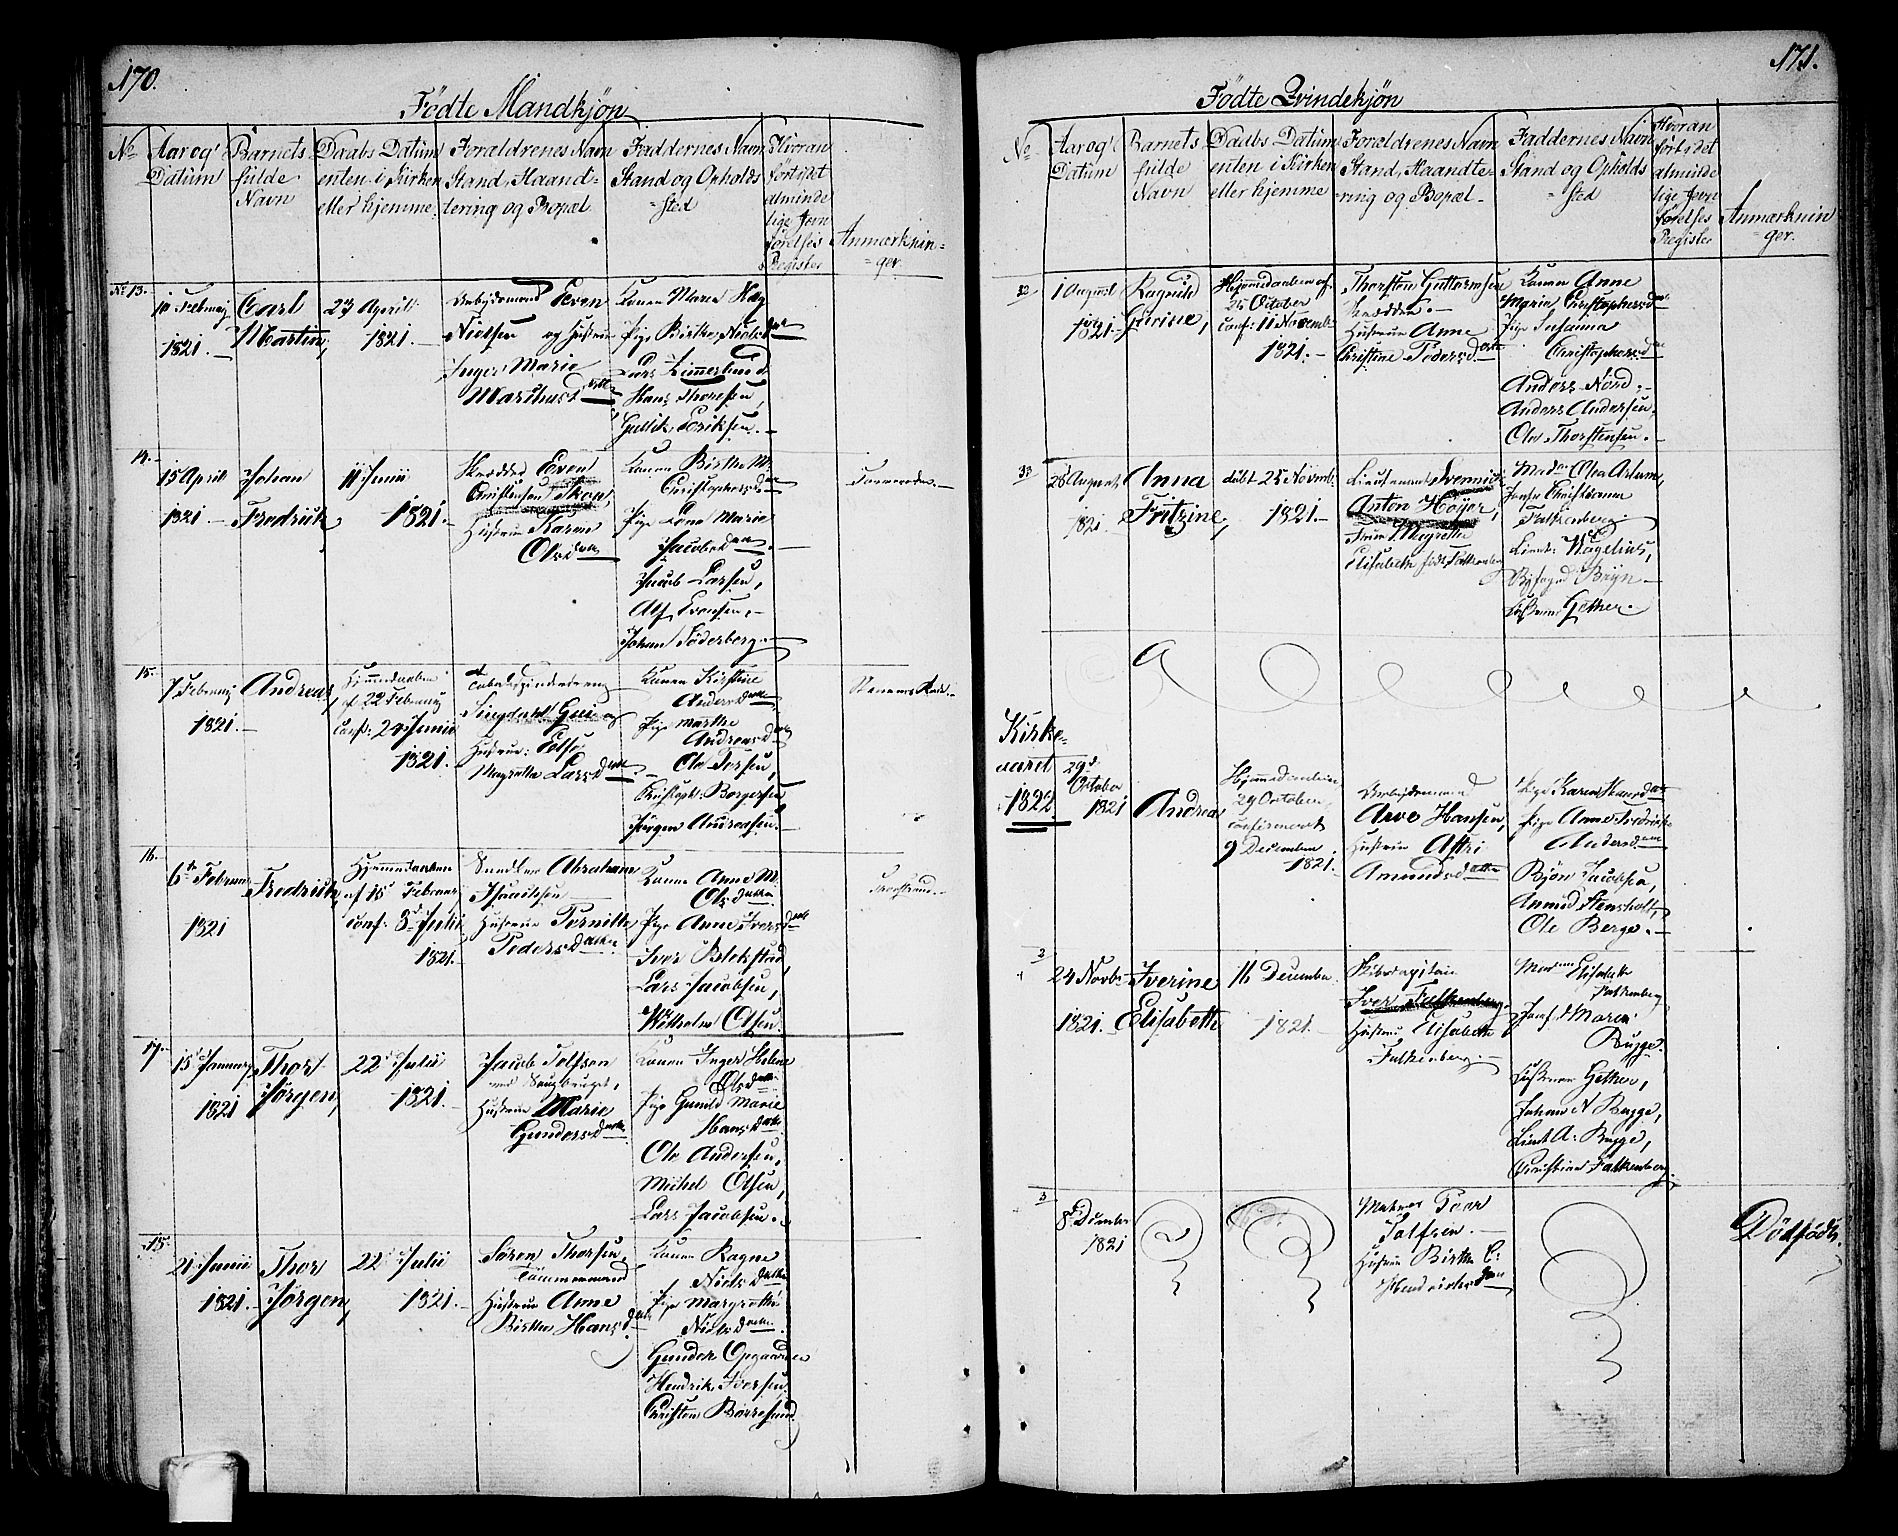 170.
Födte Mandkjön
No
Aar og Datum
Barnets fulde Navn
Daabs Datum enten i Kirken eller hjemme.
Forældrenes Navn Stand, Haandtering og Bopæl
Faddernes Navn Stand og Opholds=sted
Hvoran förtidet almindelige Jevnförelses Register
Anmærknin=ger.
No 13.
10 Februarj
1821.
Carl
Martin,
23 Aprill
1821.
Arbejdsmand Even
Nielsen og Hustrue
Inger Marie
Konen Maren
Pige Birthe Nielsdatter
Lars
Hans Thoresen,
Gullik Eriksen.
14.
15 April
1821
Johan
Fredrick,
11 Junii
1821.
Skrædder Even
Christensen
Hustrue Karen
Olsdatter
Konen Birthe M.
Christophersdatter
Pige Lene Marie
Jacobsdatter
Jacob Larsen,
Johan Söderberg.
15.
7 Februarj
1821.
Andreas
Hjemmedaaben
af 22 Februarj
conf: 24 Junii
1821.
Hustrue:
Margrethe Larsdatter.
Konen Kirstine
Andersdatter
Pige Marthe
Andreasdatter
Ole
Christoph: Borgersen
Jörgen Andreasen.
16.
6te Februar
1821
Fredrick,
Hjemmedaaben
af 15 Februar
conf: 8 Julii
1821.
Abraham
Isaachsen
Hustrue Pernille
Pedersdatter
Konen Anne M.
Olsdatter.
Pige Anne Iversdatter
Iver
Lars Jacobsen,
Wilhelm Olsen.
17.
15 Januarj
1821
Thor
Jörgen,
22 Julii
1821.
Jacob Tolfsen
ved Saugbruget,
Hustrue Marie
Gundersdatter
Konen Inger Helene
Olsdatter
Pige Gunild Marie
Hansdatter
Ole Andersen,
Michel Olsen,
Lars Jacobsen.
18.
21 Junii
1821.
Thor
Jörgen,
22 Julii
1821.
Sören Thorsen,
Tömmermand
Hustrue Anne
Birthe Hansdatter.
Konen Ragne
Nielsdatter
Pige Margrethe
Nielsdatter.
Gunder Opgaarden
Hendrik Iversen
Christen Börresund
171.
Födte Qvindekjön
No
Aar og Datum
Barnets fulde Navn
Daabs Datum enten i Kirken eller hjemme
Forældrenes Navn Stand, Haandtering og Bopæl
Faddernes Navn Stand og Opholds=sted
Hvoran förtidet almindelige Jevnförelses Register
Anmærknin=ger.
32
1 August
1821.
Gurine,
Hjemmedaaben af
25 October
conf: 11 November
1821.
Thorsten Guttormsen
Hustrue Anne
Christine Pedersdatter
Konen Anne
Maria Christophersdatter
Pige Susanna
Christophersdatter
Anders Nord.
Anders Andersen,
Ole Thorstensen.
33
28 August
1821.
Anna
Fritzine,
döbt 25 Novemb.
1821.
Lieutenant
Anton Höyer,
Frue Margrethe
Elisabeth föd Falkenberg
Jomfr Christiane
Falkenberg.
Lieut: Wagelius,
Byfoged Bryn
Gether.
Kirke=
aaret
1822.
29
October
1821
Andrea
Hjemmedaaben
29 October
confirmeret
9 December
1821.
Arbejdsmand
Arve Hansen,
Hustrue Astri
Amundsdatter
Pige Karen Hansdatter
Pige Anne Fredrikke
Andersdatter
Björn Jacobsen,
Amund Stensholt,
Ole Berge.
2
24 Novbr
1821.
Iverine
Elisabeth
16 December
1821.
Iver Falkenberg
Hustrue Elisabeth
Falkenberg.
Madam Elisabeth
Falkenberg
Jomfr Maren
Bugge.
Gether,
Johan N Bugge,
Lieut A. Bugge,
Christian Falkenberg.
3
8 December
1821
Peer
Tolfsen.
Hustrue Birthe C:
Hendrichsdatter
Dödfödt.